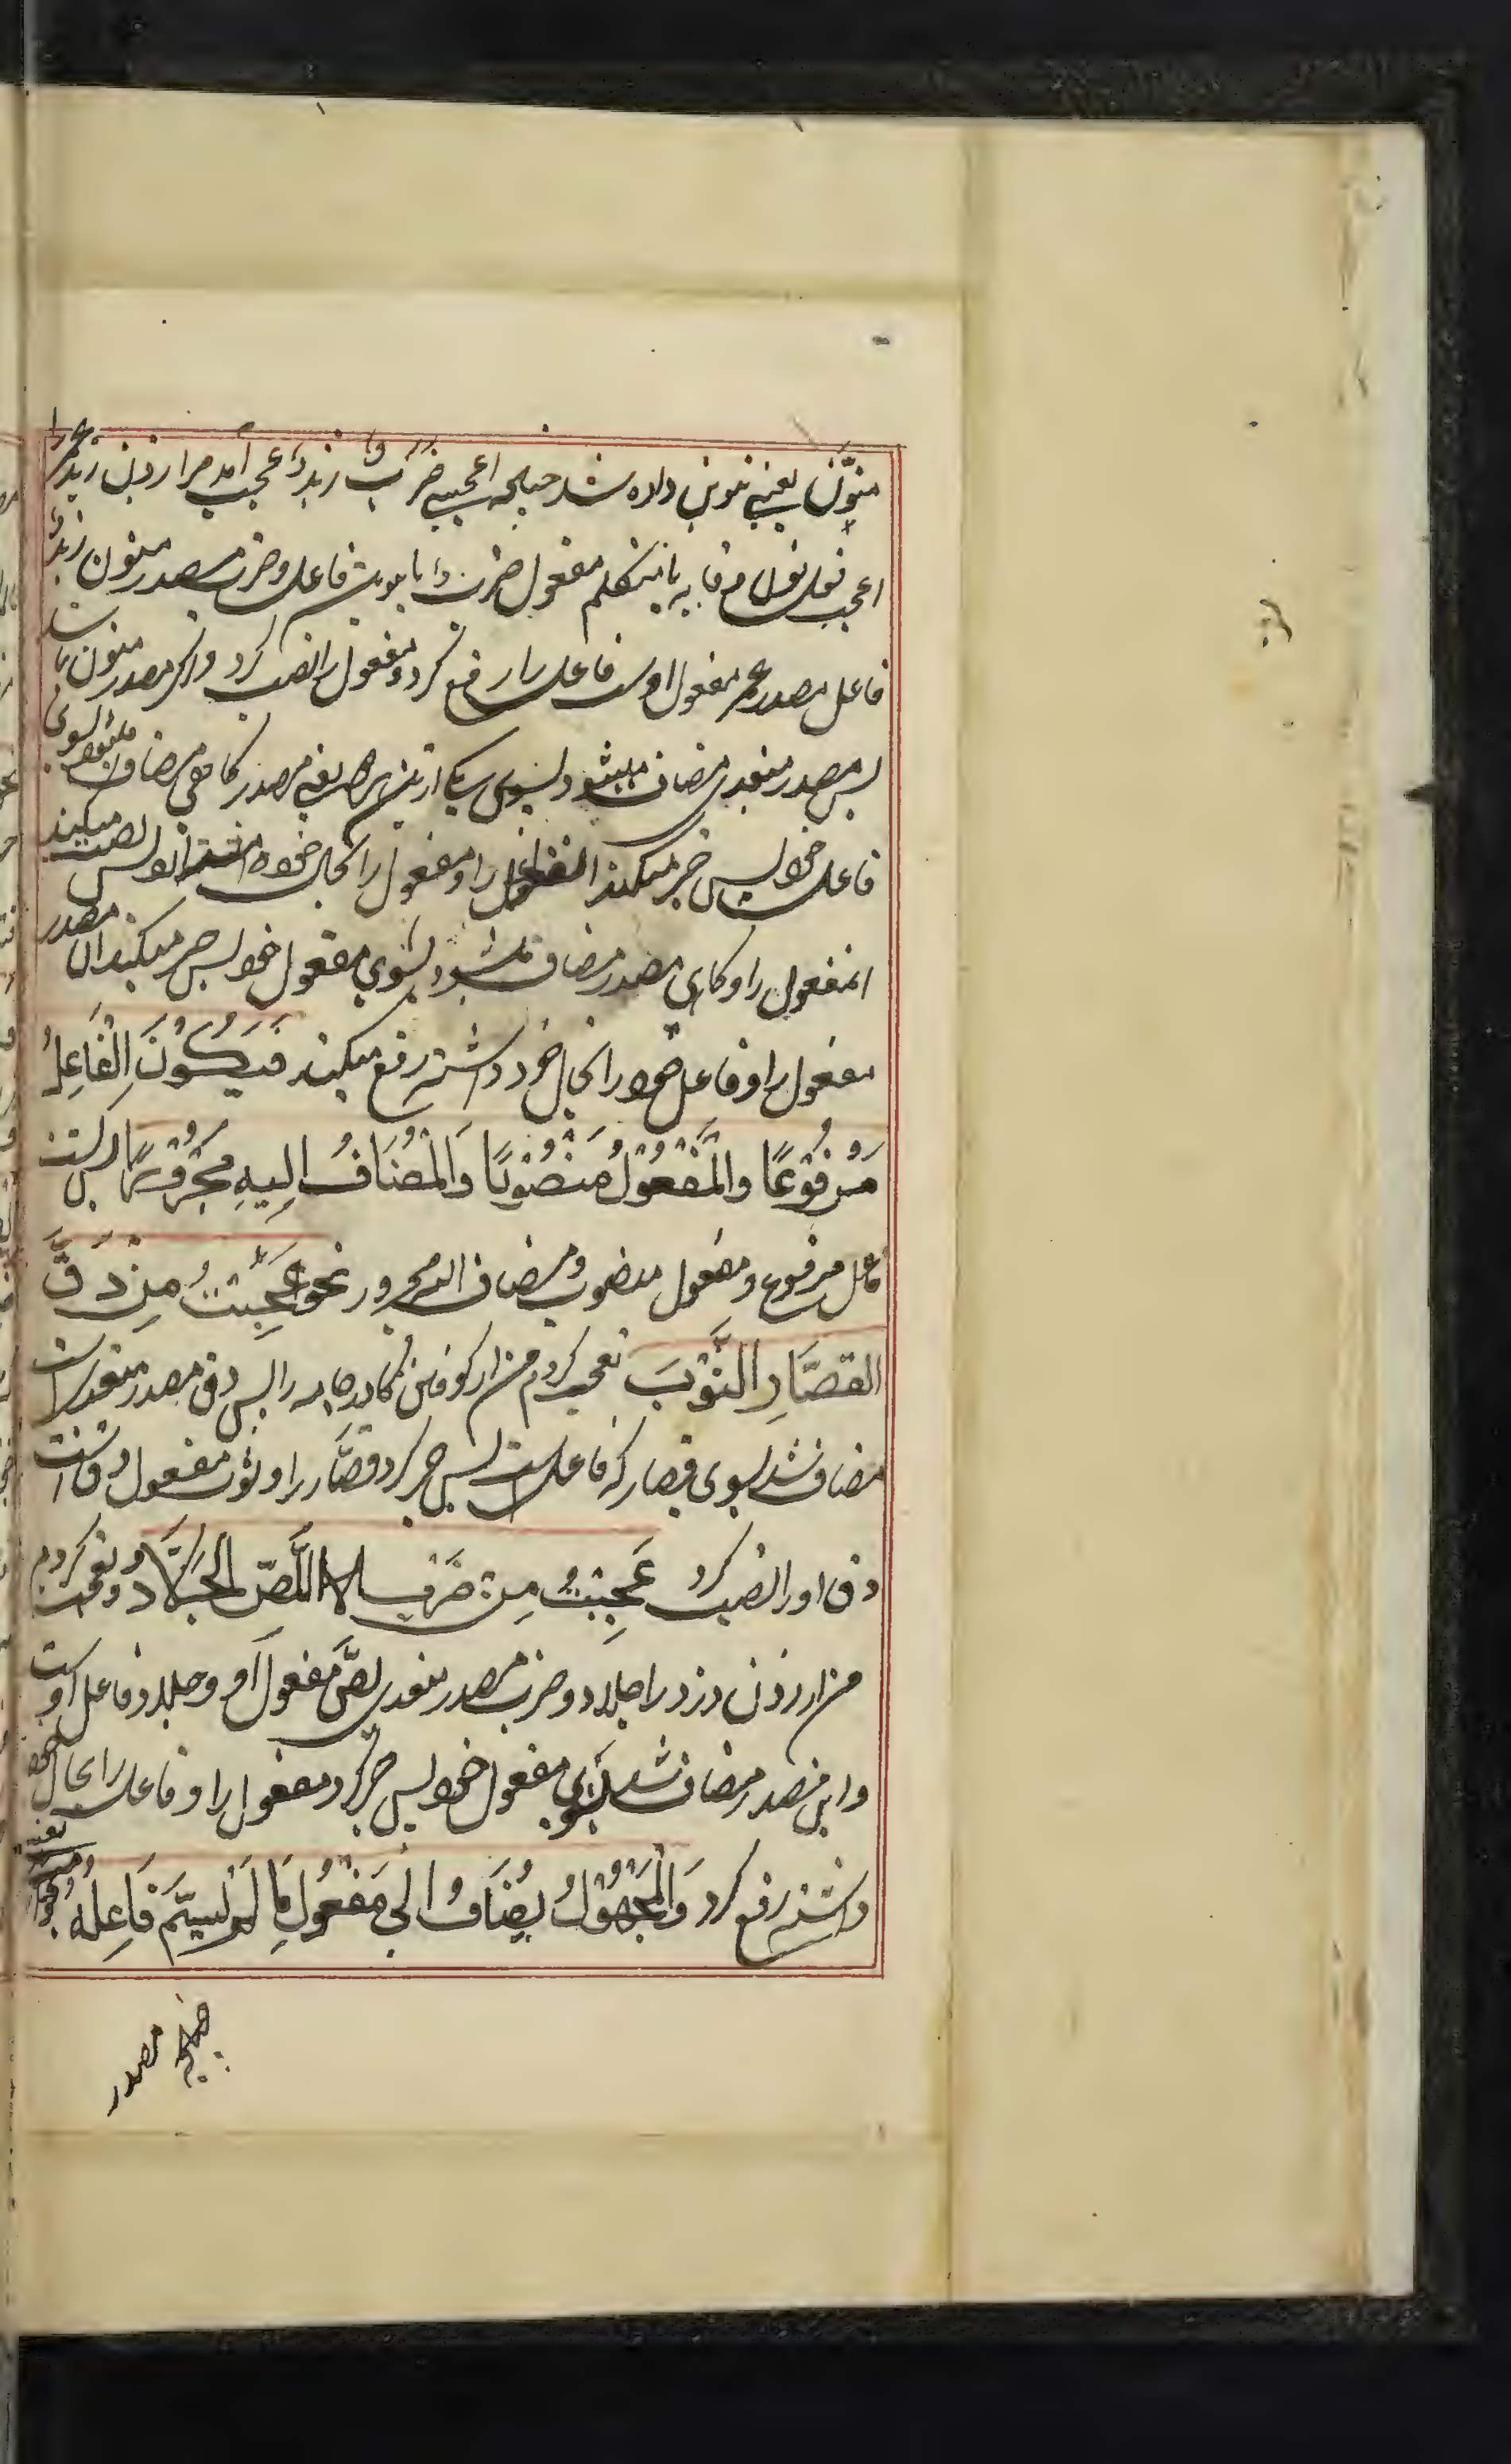 منوّن یعنی تنوین داده شد چنانچه اعجبنی ضرب زید عجب آمد مرا زدن زید عمر را
اعجب فعل نون وقایه یا متکلم مفعول ضرب فاعل و ضرب مصدر منون زید
فاعل مصدر عمر مفعول اوست فاعل را رفع کرد و مفعول را نصب کرد و اگر مصدر منون
پس مصدر متعدی مضاف میشود بسوی یکی ازین هر یعنی مصدر گاهی مضاف میشود بسوی
فاعل خود پس جر میکند آن فاعل را و مفعول را بحال خود نصب میکند
آن مفعول را و گاهی مصدر مضاف میشود بسوی مفعول خود پس جر میکند آن مصدر
مفعول را و فاعل خود را بحال خود داشته رفع میکند فَیَکُوْنَ الْفَاعِلُ
مَرْفُوْعًا وَالْمَفْعُوْلُ مَنْصُوْبًا وَالْمُضَافُ اِلَیهِ مَجْرُوْرًا پس است
فاعل مرفوع و مفعول منصوب و مضاف الیه مجرور نحو عَجِبْتُ مِنْ دَقِّ
القصَّارِ الثَّوْبَ تعجب کردم من از کوفتن گازر جامه را پس دق مصدر متعدیست
مضاف شد بسوی قصار که فاعل است پس جر کرد قصّار را و ثوب مفعول دق است
دق او را نصب کرد عَجِبْتُ مِنْ ضَرْبِ اللّصِّ الجَلَّادُ و تعجب کردم
من از زدن دزد را جلاد و ضرب مصدر متعدی لصّ مفعول او و جلاد فاعل اوست
و این مصدر مضاف شد بسوی مفعول خود پس جر کرد مفعول را و فاعل را بحال خود
داشته رفع کرد وَالْمَجْهُوْلُ یُضَافُ اِلٰی مَفْعُوْلِ مَا لَمْ یُسَمَّ فَاعِلُهُ
مصدر